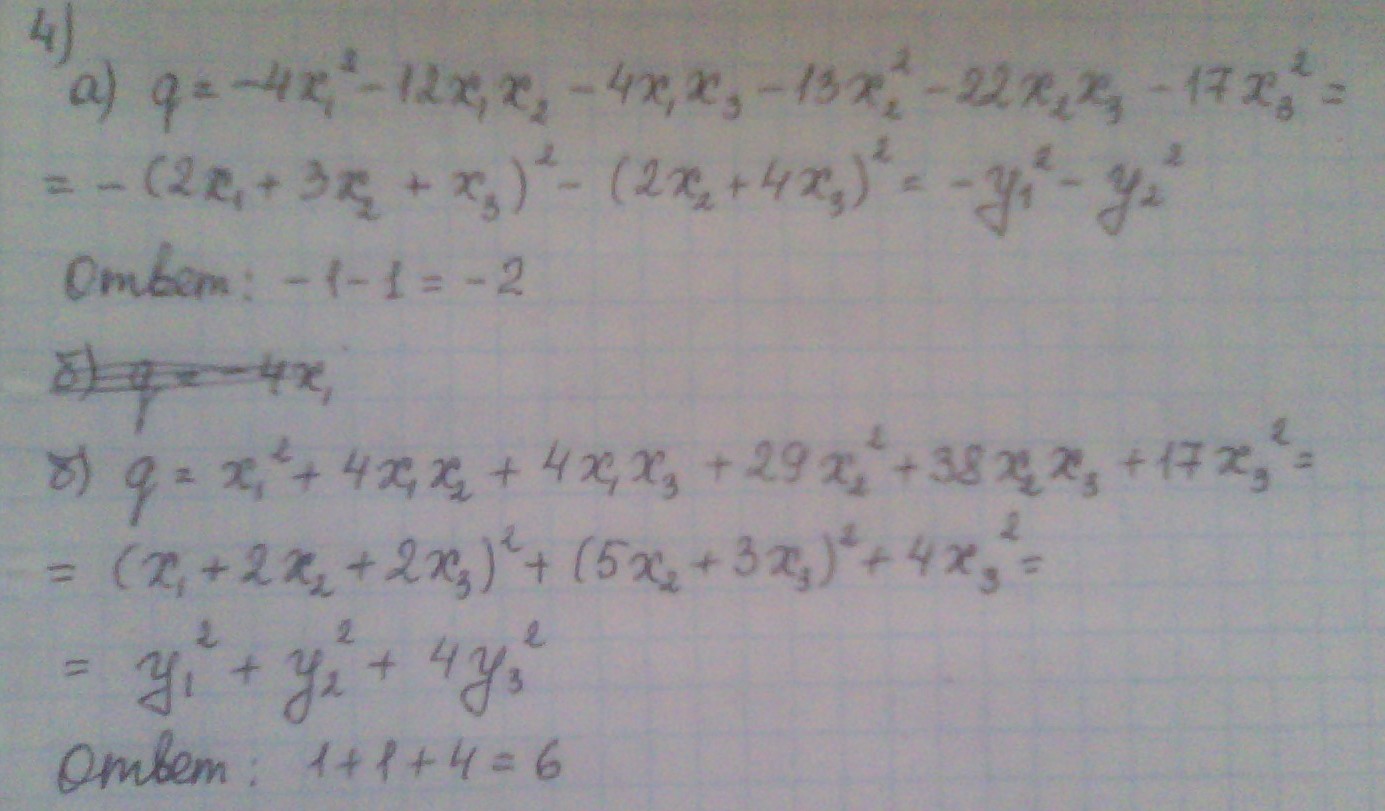 4)
а) q = -4x₁² - 12x₁x₂ - 4x₁x₃ - 13x₂² - 22x₂x₃ - 17x₃² =
= - (2x₁ + 3x₂ + x₃)² - (2x₂ + 4x₃)² = - y₁² - y₂²
Ответ: - 1 - 1 = - 2
б) q = - 4x₁
б) q = x₁² + 4x₁x₂ + 4x₁x₃ + 29x₂² + 38x₂x₃ + 17x₃² =
= (x₁ + 2x₂ + 2x₃)² + (5x₂ + 3x₃)² + 4x₃² =
= y₁² + y₂² + 4y₃²
Ответ: 1 + 1 + 4 = 6